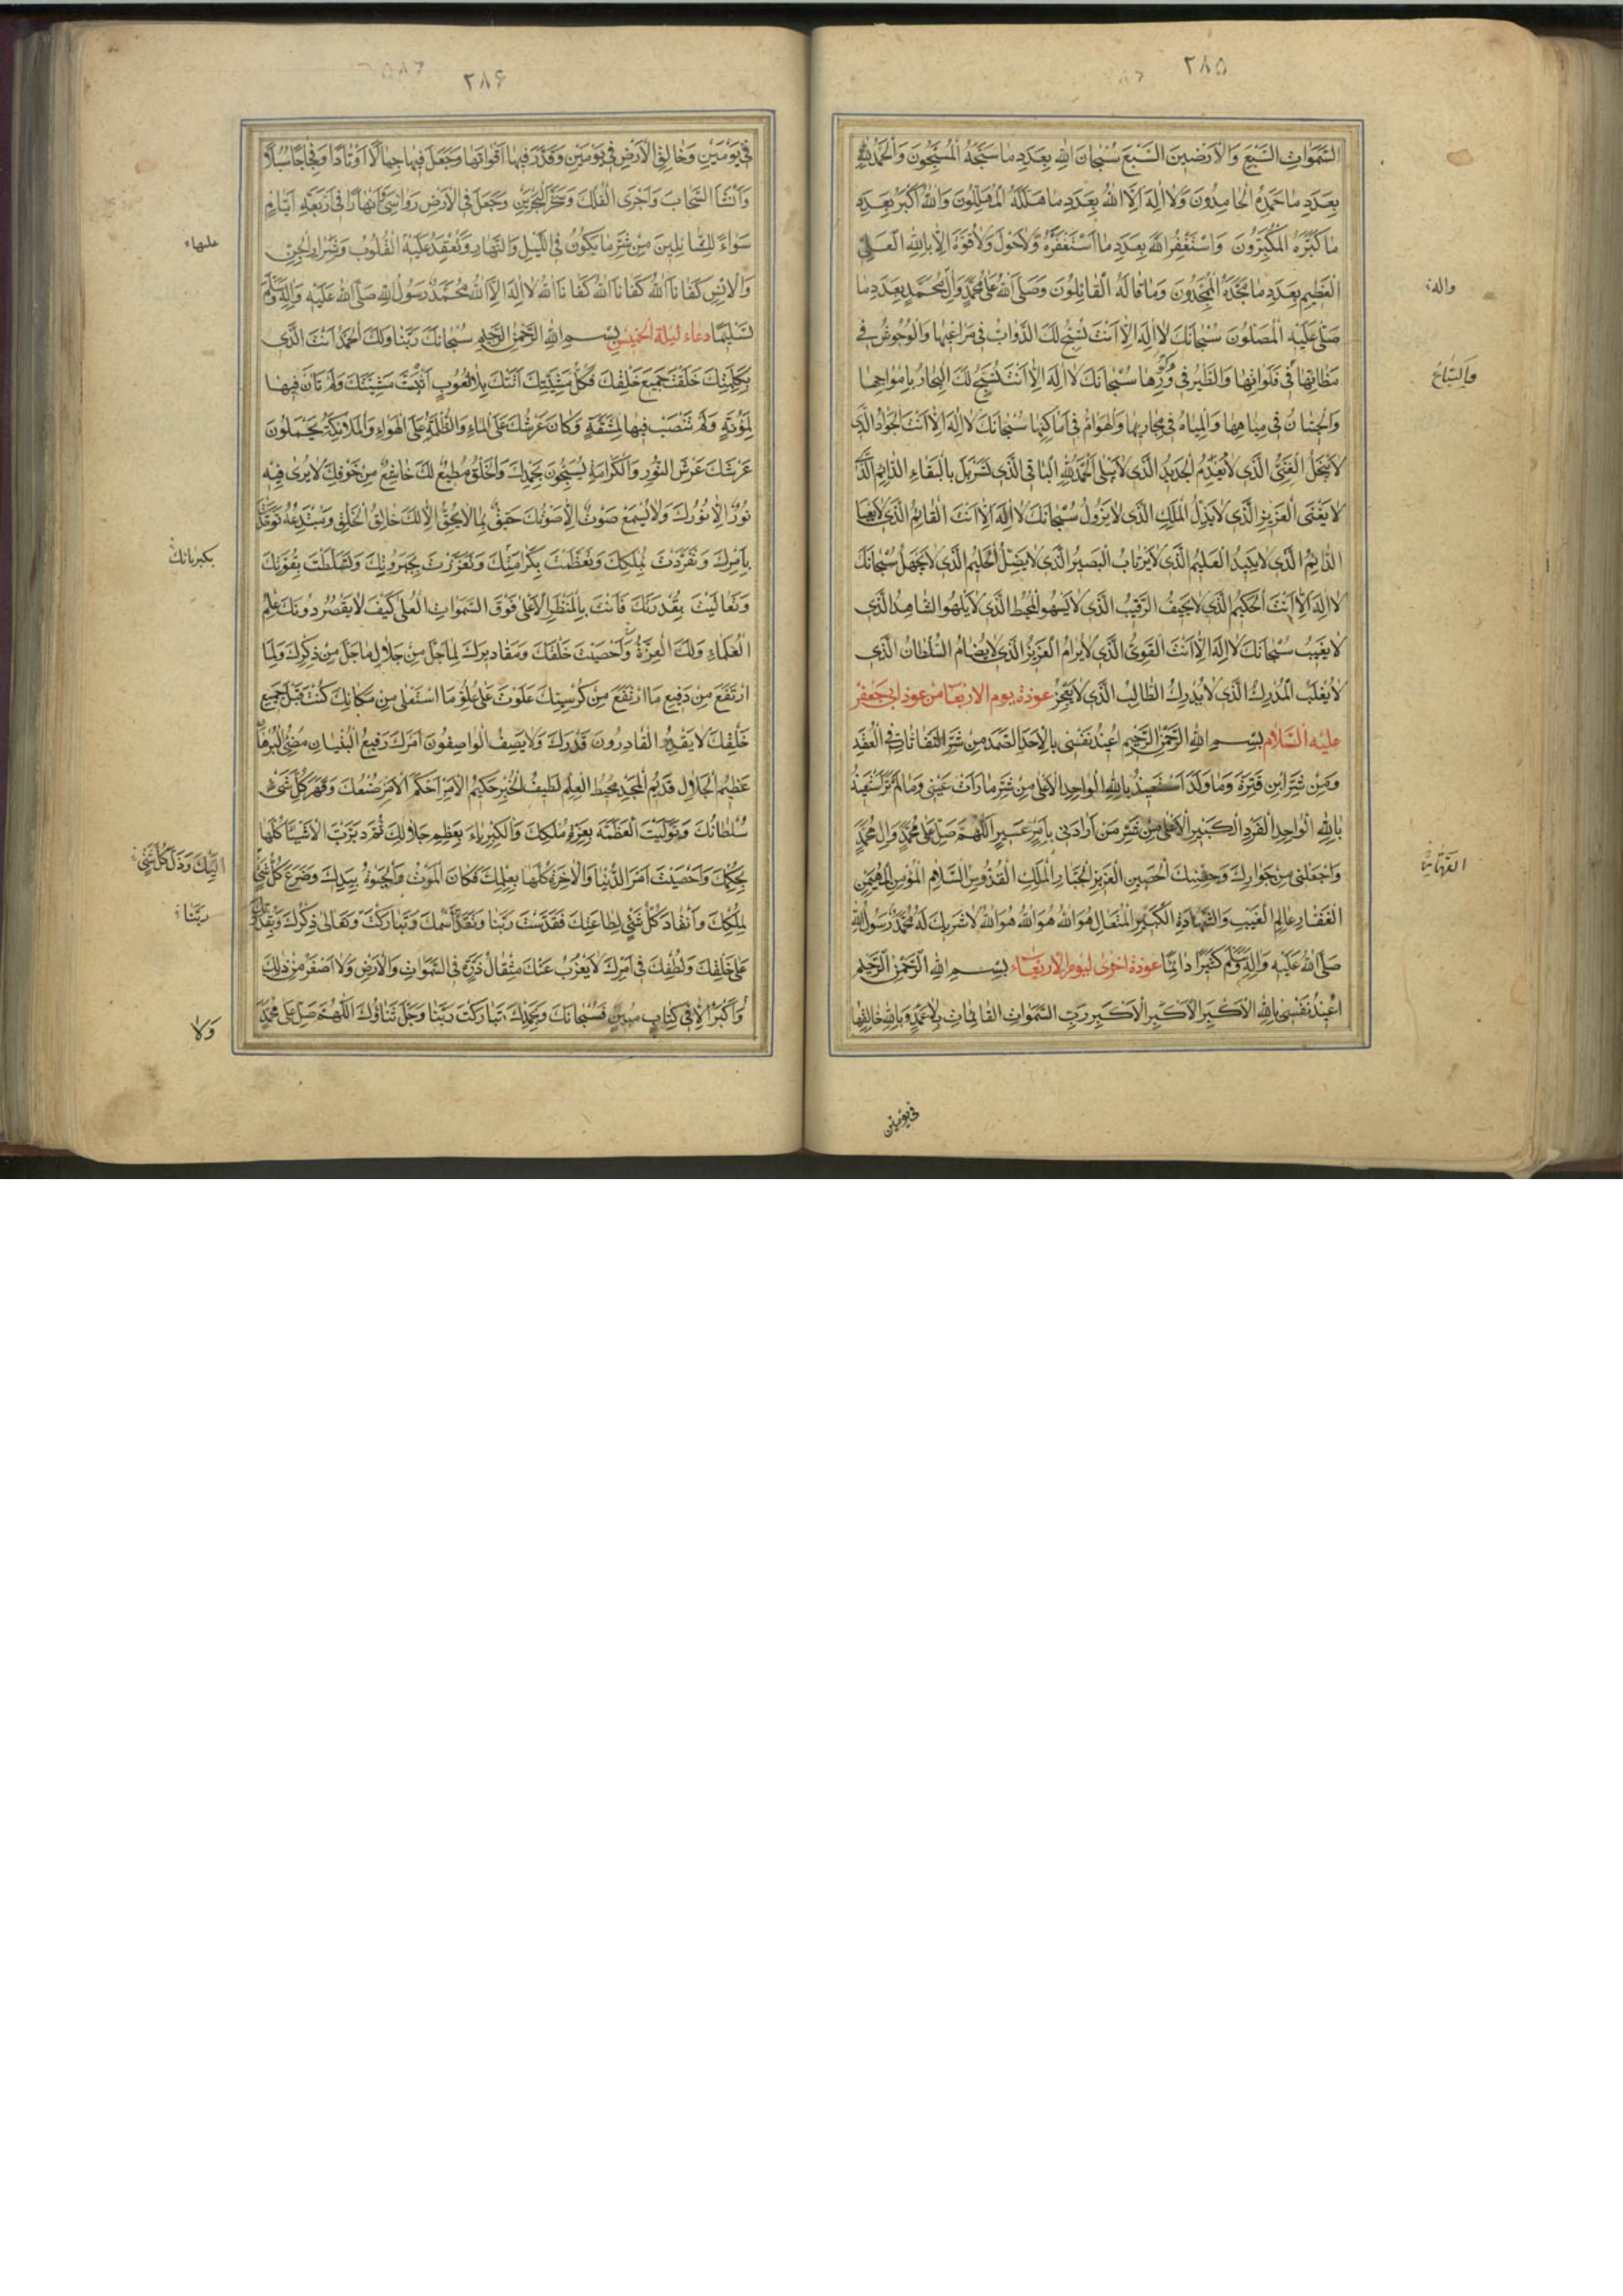 ۲۸۵
السَّمَوَاتِ السَّبْعِ وَالْاَرَضِينَ السَّبْعِ سُبْحَانَ اللهِ بِعَدَدِ مَا سَبَّحَهُ الْمُسَبِّحُونَ وَالْحَمْدُ لِلهِ
بِعَدَدِ مَا حَمِدَهُ الْحَامِدُونَ وَلَا اِلَهَ اِلَّا اللهُ بِعَدَدِ مَا هَلَّلَهُ الْمُهَلِّلُونَ وَاللهُ اَكْبَرُ بِعَدَدِ
مَا كَبَّرَهُ الْمُكَبِّرُونَ وَاَسْتَغْفِرُ اللهَ بِعَدَدِ مَا اسْتَغْفَرَهُ وَلَا حَوْلَ وَلَا قُوَّةَ اِلَّا بِاللهِ الْعَلِيِّ
الْعَظِيمِ بِعَدَدِ مَا مَجَّدَهُ الْمُمَجِّدُونَ وَمَا قَالَهُ الْقَائِلُونَ وَصَلَّى اللهُ عَلَى مُحَمَّدٍ وَآلِ مُحَمَّدٍ بِعَدَدِ مَا
واله
صَلَّى عَلَيْهِ الْمُصَلُّونَ سُبْحَانَكَ لَا اِلَهَ اِلَّا اَنْتَ تُسَبِّحُ لَكَ الدَّوَابُّ فِي مَرَاعِيهَا وَالْوُحُوشُ فِي
مَظَانِّهَا فِي فَلَوَاتِهَا وَالطَّيْرُ فِي وُكُورِهَا سُبْحَانَكَ لَا اِلَهَ اِلَّا اَنْتَ تُسَبِّحُ لَكَ الْبِحَارُ بِاَمْوَاجِهَا
وَالسِّبَاعُ
وَالْحِيتَانُ فِي مِيَاهِهَا وَالْمِيَاهُ فِي مَجَارِيهَا وَالْهَوَامُّ فِي اَمَاكِنِهَا سُبْحَانَكَ لَا اِلَهَ اِلَّا اَنْتَ الْجَوَادُ الَّذِي
لَا يَبْخَلُ الْغَنِيُّ الَّذِي لَا يُعْدِمُ الْجَدِيدُ الَّذِي لَا يَبْلَى الْحَمْدُ لِلهِ الْبَاقِي الَّذِي تَسَرْبَلَ بِالْبَقَاءِ الدَّائِمُ الَّذِي
لَا يَفْنَى الْعَزِيزُ الَّذِي لَا يَذِلُّ الْمَلِكُ الَّذِي لَا يَزُولُ سُبْحَانَكَ لَا اِلَهَ اِلَّا اَنْتَ الْقَائِمُ الَّذِي لَا يَعْيَا
الدَّائِمُ الَّذِي لَا يَبِيدُ الْعَلِيمُ الَّذِي لَا يَرْتَابُ الْبَصِيرُ الَّذِي لَا يَضِلُّ الْحَلِيمُ الَّذِي لَا يَجْهَلُ سُبْحَانَكَ
لَا اِلَهَ اِلَّا اَنْتَ الْحَكِيمُ الَّذِي لَا يَحِيفُ الرَّقِيبُ الَّذِي لَا يَسْهُو الْمُحِيطُ الَّذِي لَا يَلْهُو الشَّاهِدُ الَّذِي
لَا يَغِيبُ سُبْحَانَكَ لَا اِلَهَ اِلَّا اَنْتَ الْقَوِيُّ الَّذِي لَا يُرَامُ الْعَزِيزُ الَّذِي لَا يُضَامُ السُّلْطَانُ الَّذِي
لَا يُغْلَبُ الْمُدْرِكُ الَّذِي لَا يُدْرَكُ الطَّالِبُ الَّذِي لَا يَعْجِزُ عوذة يوم الاربعا من عوذ ابى جعفر
عليه السلام بِسْمِ اللهِ الرَّحْمَنِ الرَّحِيمِ اُعِيذُ نَفْسِي بِالْاَحَدِ الصَّمَدِ مِنْ شَرِّ النَّفَّاثَاتِ فِي الْعُقَدِ
وَمِنْ شَرِّ ابْنِ قِتْرَةَ وَمَا وَلَدَ اَسْتَعِيذُ بِاللهِ الْوَاحِدِ الْاَعْلَى مِنْ شَرِّ مَا رَاَتْ عَيْنِي وَمَا لَمْ تَرَ اَسْتَعِيذُ
بِاللهِ الْوَاحِدِ الْفَرْدِ الْكَبِيرِ الْاَعْلَى مِنْ شَرِّ مَنْ اَرَادَنِي بِاَمْرٍ عَسِيرٍ اَللَّهُمَّ صَلِّ عَلَى مُحَمَّدٍ وَآلِ مُحَمَّدٍ
وَاجْعَلْنِي مِنْ جِوَارِكَ وَحِصْنِكَ الْحَصِينِ الْعَزِيزِ الْجَبَّارِ الْمَلِكِ الْقُدُّوسِ السَّلَامِ الْمُؤْمِنِ الْمُهَيْمِنِ
الْغَفَّارِ عَالِمِ الْغَيْبِ وَالشَّهَادَةِ الْكَبِيرِ الْمُتَعَالِ هُوَ اللهُ هُوَ اللهُ هُوَ اللهُ لَا شَرِيكَ لَهُ مُحَمَّدٌ رَسُولُ اللهِ
صَلَّى اللهُ عَلَيْهِ وَآلِهِ وَسَلَّمَ كَثِيرًا دَائِمًا عوذة اخرى ليوم الاربعاء بِسْمِ اللهِ الرَّحْمَنِ الرَّحِيمِ
اُعِيذُ نَفْسِي بِاللهِ الْاَكْبَرِ الْاَكْبَرِ الْاَكْبَرِ رَبِّ السَّمَوَاتِ الْقَائِمَاتِ بِلَا عَمَدٍ وَبِاللهِ خَالِقِهَا
فِي يَوْمَيْنِ
۲۸۶
فِي يَوْمَيْنِ وَخَالِقِ الْاَرْضِ فِي يَوْمَيْنِ وَقَدَّرَ فِيهَا اَقْوَاتَهَا وَجَعَلَ فِيهَا جِبَالًا اَوْتَادًا وَفِجَاجًا سُبُلًا
وَاَنْشَاَ السَّحَابَ وَاَجْرَى الْفُلْكَ وَسَخَّرَ الْبَحْرَيْنِ وَجَعَلَ فِي الْاَرْضِ رَوَاسِيَ وَاَنْهَارًا فِي اَرْبَعَةِ اَيَّامٍ
سَوَاءً لِلسَّائِلِينَ مِنْ شَرِّ مَا يَكُونُ فِي اللَّيْلِ وَالنَّهَارِ وَتُعْقَدُ عَلَيْهِ الْقُلُوبُ وَشِرَارِ الْجِنِّ
وَالْاِنْسِ كَفَانَا اللهُ كَفَانَا اللهُ كَفَانَا اللهُ لَا اِلَهَ اِلَّا اللهُ مُحَمَّدٌ رَسُولُ اللهِ صَلَّى اللهُ عَلَيْهِ وَآلِهِ وَسَلَّمَ
تَسْلِيمًا دعاء ليلة الخميس بِسْمِ اللهِ الرَّحْمَنِ الرَّحِيمِ سُبْحَانَكَ رَبَّنَا وَلَكَ الْحَمْدُ اَنْتَ الَّذِي
بِكَلِمَتِكَ خَلَقْتَ جَمِيعَ خَلْقِكَ فَكُلُّ مَشِيَّتِكَ اَتَتْكَ بِلَا لُغُوبٍ اَثْبَتَّ مَشِيَّتَكَ وَلَمْ تَاَنَّ فِيهَا
لِمَؤُنَةٍ وَلَمْ تَنْصَبْ فِيهَا لِمَشَقَّةٍ وَكَانَ عَرْشُكَ عَلَى الْمَاءِ وَالظُّلْمَةُ عَلَى الْهَوَاءِ وَالْمَلَائِكَةُ يَحْمِلُونَ
عَرْشَكَ عَرْشَ النُّورِ وَالْكَرَامَةِ يُسَبِّحُونَ بِحَمْدِكَ وَالْخَلْقُ مُطِيعٌ لَكَ خَاشِعٌ مِنْ خَوْفِكَ لَا يُرَى فِيهِ
نُورٌ اِلَّا نُورُكَ وَلَا يُسْمَعُ صَوْتٌ اِلَّا صَوْتُكَ حَقِيقٌ بِمَا لَا يَحِقُّ اِلَّا لَكَ خَالِقُ الْخَلْقِ وَمُبْتَدِعُهُ تَوَحَّدْتَ
بِاَمْرِكَ وَتَفَرَّدْتَ بِمُلْكِكَ وَتَعَظَّمْتَ بِكَرَامَتِكَ وَتَعَزَّزْتَ بِجَبَرُوتِكَ وَتَسَلَّطْتَ بِقُوَّتِكَ
بكبريائك
وَتَعَالَيْتَ بِقُدْرَتِكَ فَاَنْتَ بِالْمَنْظَرِ الْاَعْلَى فَوْقَ السَّمَوَاتِ الْعُلَى كَيْفَ لَا يَقْصُرُ دُونَكَ عِلْمُ
الْعُلَمَاءِ وَلَكَ الْعِزَّةُ وَاَحْصَيْتَ خَلْقَكَ وَمَقَادِيرَكَ لِمَا جَلَّ مِنْ جَلَالِ مَا جَلَّ مِنْ ذِكْرِكَ وَلِمَا
ارْتَفَعَ مِنْ رَفِيعِ مَا ارْتَفَعَ مِنْ كُرْسِيِّكَ عَلَوْتَ عَلَى عُلُوِّ مَا اسْتَعْلَى مِنْ مَكَانِكَ كُنْتَ قَبْلَ جَمِيعِ
خَلْقِكَ لَا يَقْدِرُ الْقَادِرُونَ قَدْرَكَ وَلَا يَصِفُ الْوَاصِفُونَ اَمْرَكَ رَفِيعُ الْبُنْيَانِ مُضِيءُ الْبُرْهَانِ
عَظِيمُ الْجَلَالِ قَدِيمُ الْمَجْدِ مُحِيطُ الْعِلْمِ لَطِيفُ الْخُبْرِ حَكِيمُ الْاَمْرِ اَحْكَمَ الْاَمْرَ صُنْعُكَ وَقَهَرَ كُلَّ شَيْءٍ
سُلْطَانُكَ وَتَوَلَّيْتَ الْعَظَمَةَ بِعِزَّةِ مُلْكِكَ وَالْكِبْرِيَاءَ بِعَظِيمِ جَلَالِكَ ثُمَّ دَبَّرْتَ الْاَشْيَاءَ كُلَّهَا
بِحُكْمِكَ وَاَحْصَيْتَ اَمْرَ الدُّنْيَا وَالْآخِرَةِ كُلَّهَا بِعِلْمِكَ فَكَانَ الْمَوْتُ وَالْحَيَوةُ بِيَدِكَ وَضَرَعَ كُلُّ شَيْءٍ
اِلَيْكَ وَذَلَّ كُلُّ شَيْءٍ
لِمُلْكِكَ وَانْقَادَ كُلُّ شَيْءٍ لِطَاعَتِكَ فَتَقَدَّسْتَ رَبَّنَا وَتَقَدَّسَ اسْمُكَ وَتَبَارَكْتَ وَتَعَالَى ذِكْرُكَ وَبِقُدْرَتِكَ
رَبَّنَا
عَلَى خَلْقِكَ وَلُطْفِكَ فِي اَمْرِكَ لَا يَعْزُبُ عَنْكَ مِثْقَالُ ذَرَّةٍ فِي السَّمَوَاتِ وَالْاَرْضِ وَلَا اَصْغَرُ مِنْ ذَلِكَ
وَاَكْبَرُ اِلَّا فِي كِتَابٍ مُبِينٍ فَسُبْحَانَكَ وَبِحَمْدِكَ تَبَارَكْتَ رَبَّنَا وَجَلَّ ثَنَاؤُكَ اَللَّهُمَّ صَلِّ عَلَى مُحَمَّدٍ
وَلَا